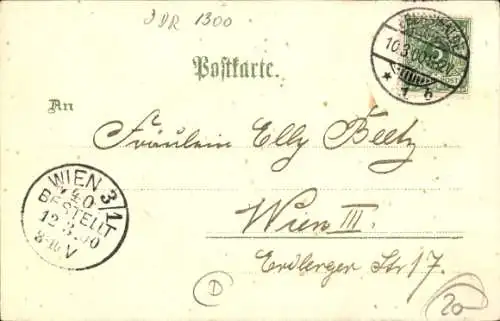 DDR 1300
10.3.00
* 1 b
Postkarte.
An
Fräulein Elly Beetz
Wien III.
Erdberger Str 17.
WIEN 3/1
140
BESTELLT
12.3.00
V
D
20